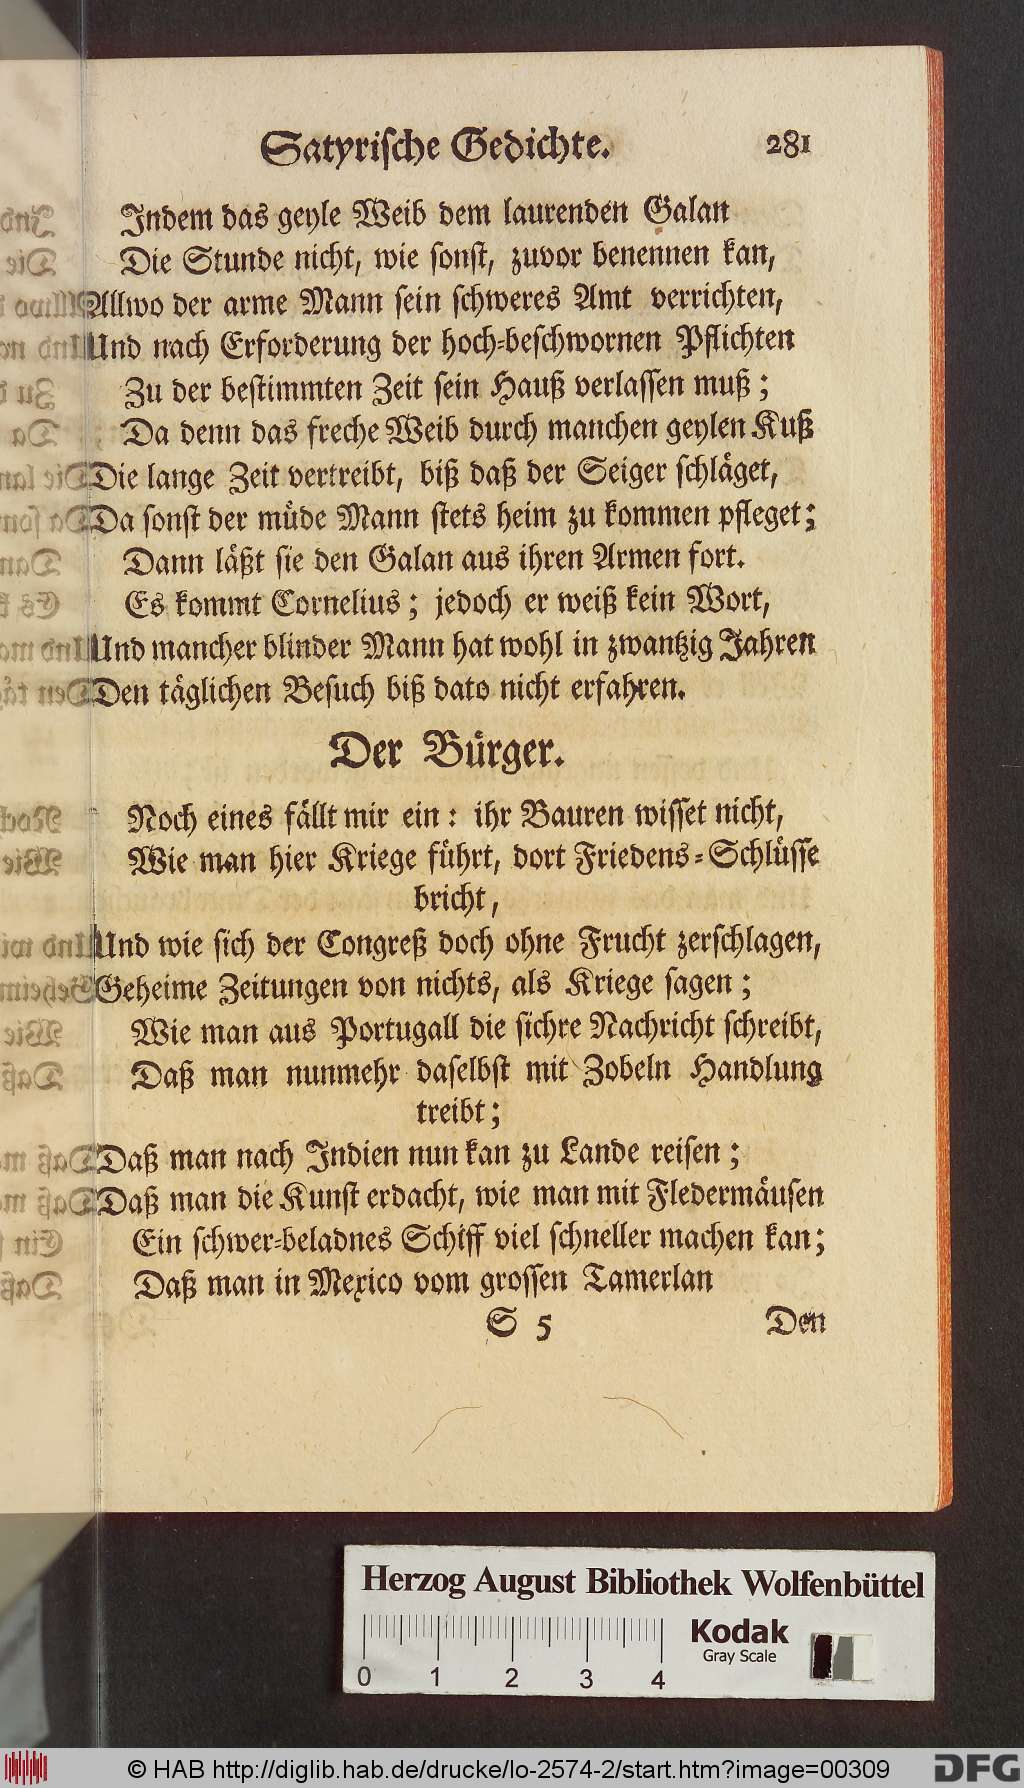 Satyrische Gedichte. 281
Indem das geyle Weib dem laurenden Galan
Die Stunde nicht, wie sonst, zuvor benennen kan,
Allwo der arme Mann sein schweres Amt verrichten,
Und nach Erforderung der hoch-beschwornen Pflichten
Zu der bestimmten Zeit sein Hauß verlassen muß;
Da denn das freche Weib durch manchen geylen Kuß
Die lange Zeit vertreibt, biß daß der Seiger schläget,
Da sonst der müde Mann stets heim zu kommen pfleget;
Dann läßt sie den Galan aus ihren Armen fort.
Es kommt Cornelius; jedoch er weiß kein Wort,
Und mancher blinder Mann hat wohl in zwantzig Jahren
Den täglichen Besuch biß dato nicht erfahren.
Der Bürger.
Noch eines fällt mir ein: ihr Bauren wisset nicht,
Wie man hier Kriege führt, dort Friedens-Schlüsse
bricht,
Und wie sich der Congreß doch ohne Frucht zerschlagen,
Geheime Zeitungen von nichts, als Kriege sagen;
Wie man aus Portugall die sichre Nachricht schreibt,
Daß man nunmehr daselbst mit Zobeln Handlung
treibt;
Daß man nach Indien nun kan zu Lande reisen;
Daß man die Kunst erdacht, wie man mit Fledermäusen
Ein schwer-beladnes Schiff viel schneller machen kan;
Daß man in Mexico vom grossen Tamerlan
S 5 Den
Herzog August Bibliothek Wolfenbüttel
Kodak
Gray Scale
0 1 2 3 4
© HAB http://diglib.hab.de/drucke/lo-2574-2/start.htm?image=00309
DFG